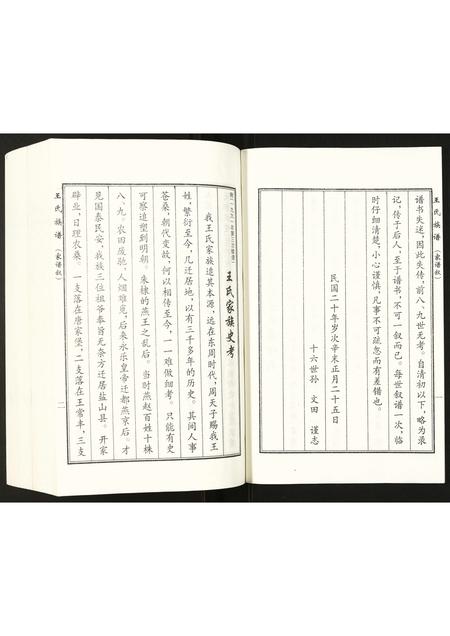 王氏族谱（家谱叙）
一
谱书失述，因此失传，前八、九世无考。自清初以下，略为录
记，传于后人，至于谱书，不可一叙而已。每世叙谱一次，临
时仔细清楚，小心谨慎，凡事不可疏忽而有差错也。
民国二十年岁次辛未正月二十五日
十六世孙 文田 谨志
王氏家族史考
我王氏家族追其本源，远在东周时代，周天子赐我王
姓，繁衍至今，几迁居地，以有三千多年的历史。其间人事
苍桑，朝代变故，何以相传至今，一一难做细考。只能有史
可察追塑到明朝。朱棣的燕王之乱后。当时燕赵百姓十株
八、九。农田废驰，人烟难觅，后来永乐皇帝迁都燕京后。才
见国泰民安，我族三位祖爷奉旨无奈方迁居盐山县。开家
肆业，日理农桑。一支落在唐家堡，二支落在王常丰，三支
王氏族谱（家谱叙）
二